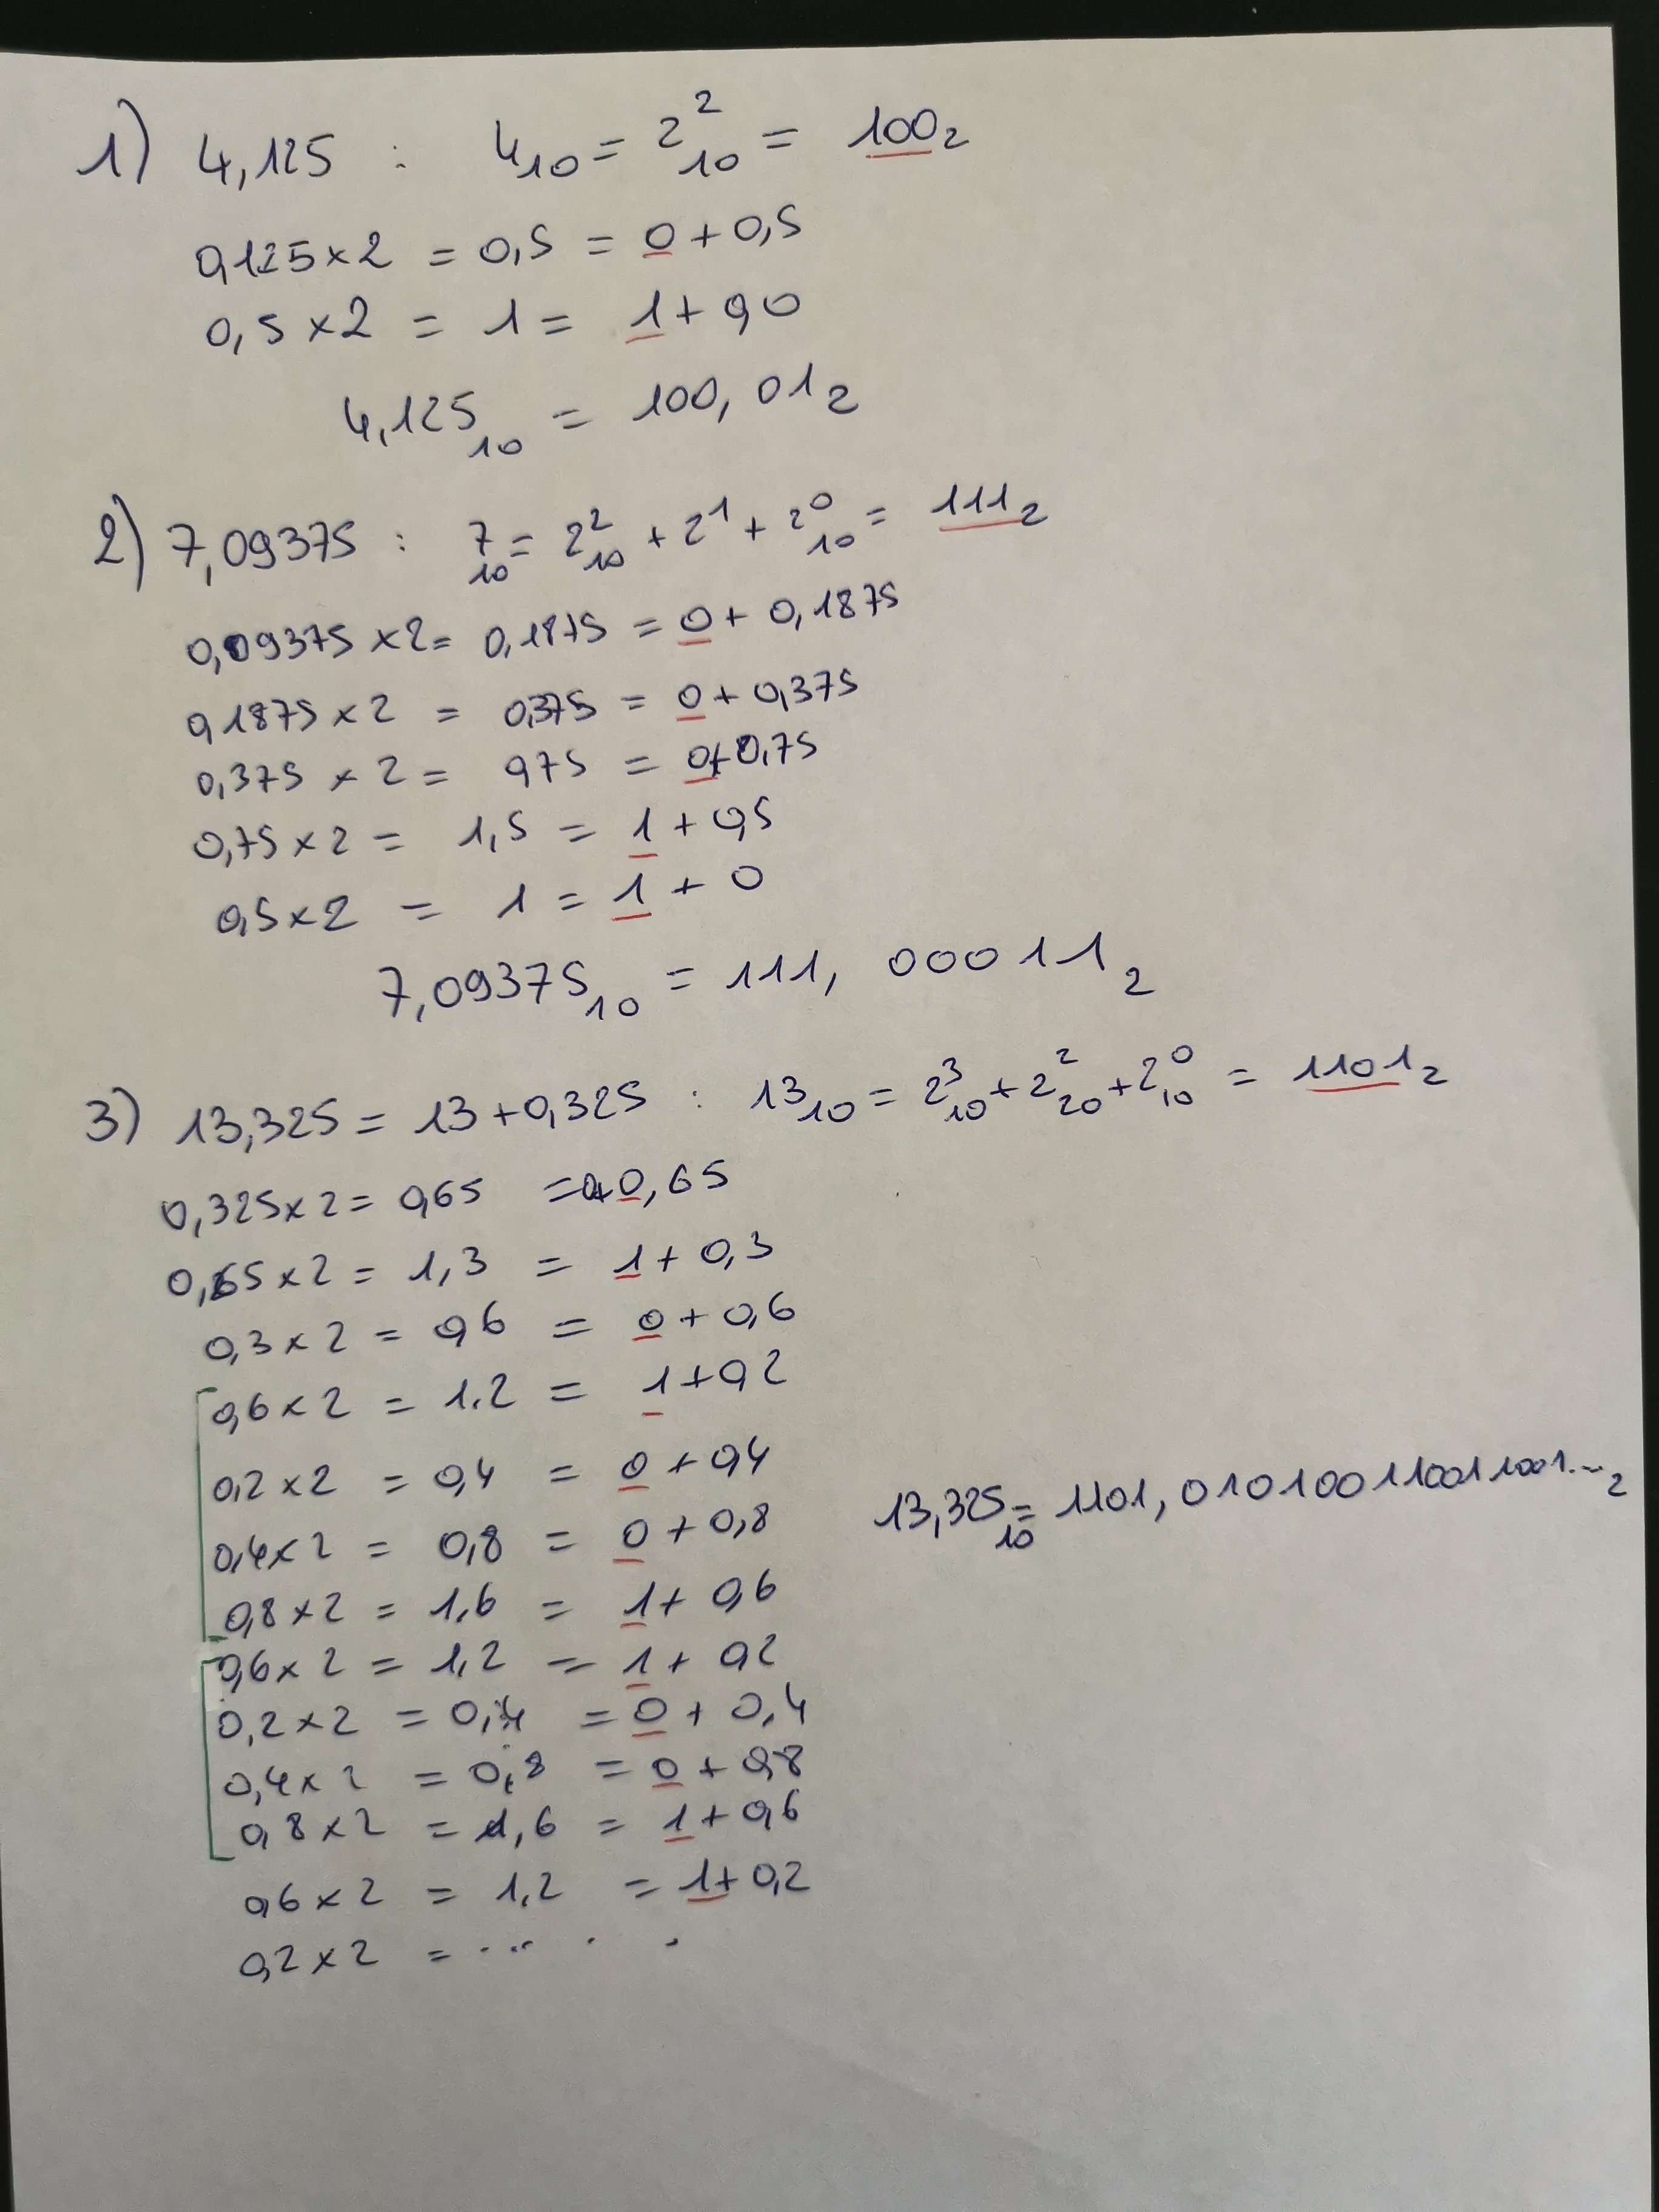 1) 4,125 : 4₁₀ = 2²₁₀ = 100₂
0,125×2 = 0,5 = 0 + 0,5
0,5×2 = 1 = 1 + 0,0
4,125₁₀ = 100,01₂
2) 7,09375 : 7₁₀ = 2²₁₀ + 2¹ + 2⁰₁₀ = 111₂
0,09375×2 = 0,1875 = 0 + 0,1875
0,1875×2 = 0,375 = 0 + 0,375
0,375×2 = 0,75 = 0 + 0,75
0,75×2 = 1,5 = 1 + 0,5
0,5×2 = 1 = 1 + 0
7,09375₁₀ = 111,00011₂
3) 13,325 = 13 + 0,325 : 13₁₀ = 2³₁₀ + 2²₂₀ + 2⁰₁₀ = 1101₂
0,325×2 = 0,65 = 0+0,65
0,65×2 = 1,3 = 1 + 0,3
0,3×2 = 0,6 = 0 + 0,6
0,6×2 = 1.2 = 1 + 0,2
0,2×2 = 0,4 = 0 + 0,4
0,4×2 = 0,8 = 0 + 0,8
13,325₁₀ = 1101,010100110011001...₂
0,8×2 = 1,6 = 1 + 0,6
0,6×2 = 1,2 = 1 + 0,2
0,2×2 = 0,4 = 0 + 0,4
0,4×2 = 0,8 = 0 + 0,8
0,8×2 = 1,6 = 1 + 0,6
0,6×2 = 1,2 = 1 + 0,2
0,2×2 = ... . .